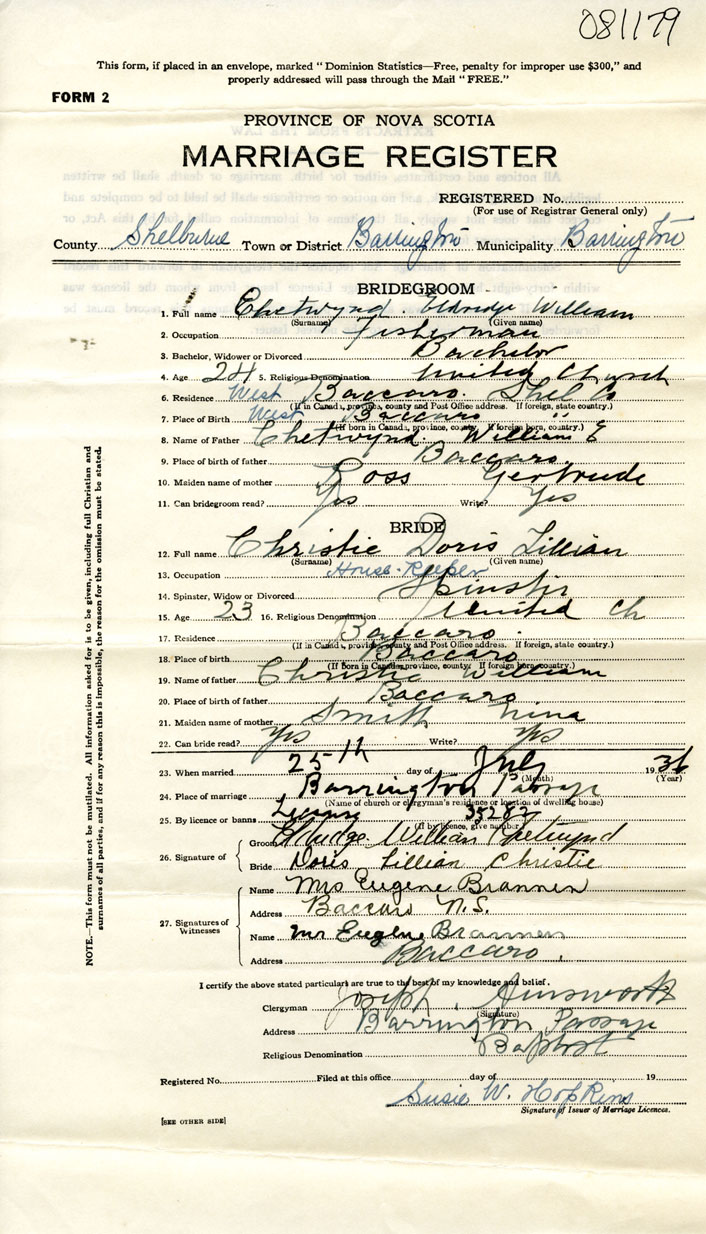 081179
This form, if placed in an envelope, marked "Dominion Statistics—Free, penalty for improper use $300," and
properly addressed will pass through the Mail "FREE."
FORM 2
PROVINCE OF NOVA SCOTIA
MARRIAGE REGISTER
REGISTERED No.
(For use of Registrar General only)
County Shelburne Town or District Barrington Municipality Barrington
BRIDEGROOM
1. Full name Chetwynd Eldridge William
(Surname) (Given name)
2. Occupation Fisherman
3. Bachelor, Widower or Divorced Bachelor
4. Age 24 5. Religious Denomination United Church
6. Residence West Baccaro. Shel Co
(If in Canada, province, county and Post Office address. If foreign, state country.)
7. Place of Birth West Baccaro " "
(If born in Canada, province, county, If foreign born, country.)
8. Name of Father Chetwynd. William E
9. Place of birth of father Baccaro.
10. Maiden name of mother Ross Gertrude
11. Can bridegroom read? Yes Write? Yes
BRIDE
12. Full name Christie Doris Lillian
(Surname) (Given name)
13. Occupation House-Keeper
14. Spinster, Widow or Divorced Spinster
15. Age 23 16. Religious Denomination United Ch
17. Residence Baccaro.
(If in Canada, province, county and Post Office address. If foreign, state country.)
18. Place of birth Baccaro
(If born in Canada, province, county, If foreign born, country.)
19. Name of father Christie William
20. Place of birth of father Baccaro
21. Maiden name of mother Smith Nina
22. Can bride read? Yes Write? Yes
23. When married 25th day of July 1936
(Month) (Year)
24. Place of marriage Barrington Passage
(Name of church or clergyman's residence or location of dwelling house)
25. By licence or banns License 35282
(If by licence, give number)
26. Signature of Groom Eldridge William Chetwynd
Bride Doris Lillian Christie
27. Signatures of Witnesses
Name Mrs Eugene Brannen
Address Baccaro N.S.
Name Mr Eugene Brannen
Address Baccaro.
I certify the above stated particulars are true to the best of my knowledge and belief.
Clergyman Joseph. Ainsworth
(Signature)
Address Barrington Passage
Religious Denomination Baptist
Registered No. Filed at this office day of 19
Susie W. Hopkins
Signature of Issuer of Marriage Licences.
[SEE OTHER SIDE]
NOTE.—This form must not be mutilated. All information asked for is to be given, including full Christian and
surnames of all parties, and if for any reason this is impossible, the reason for the omission must be stated.